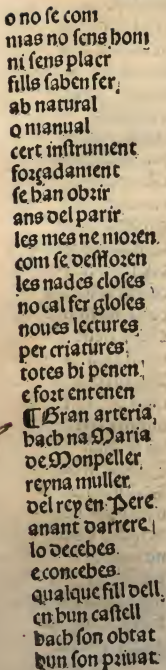 o no se com
mas no sens hom
ni sens placr
fills saben fer,
ab natural
o manual
cert instrument
forçadament
se han obrir
ans del parir
les mes ne moren.
com se desfloren
les nades closes,
no cal fer gloses
noues lectures
per criatures,
totes hi penen,
e fort entenen
¶ Gran arteria,
hach na Maria
de Monpeller,
reyna muller
del rey en Pere
anant darrere,
lo decebes.
e concebes.
qualque fill dell,
en hun castell
hach son obtat
hun son priuat